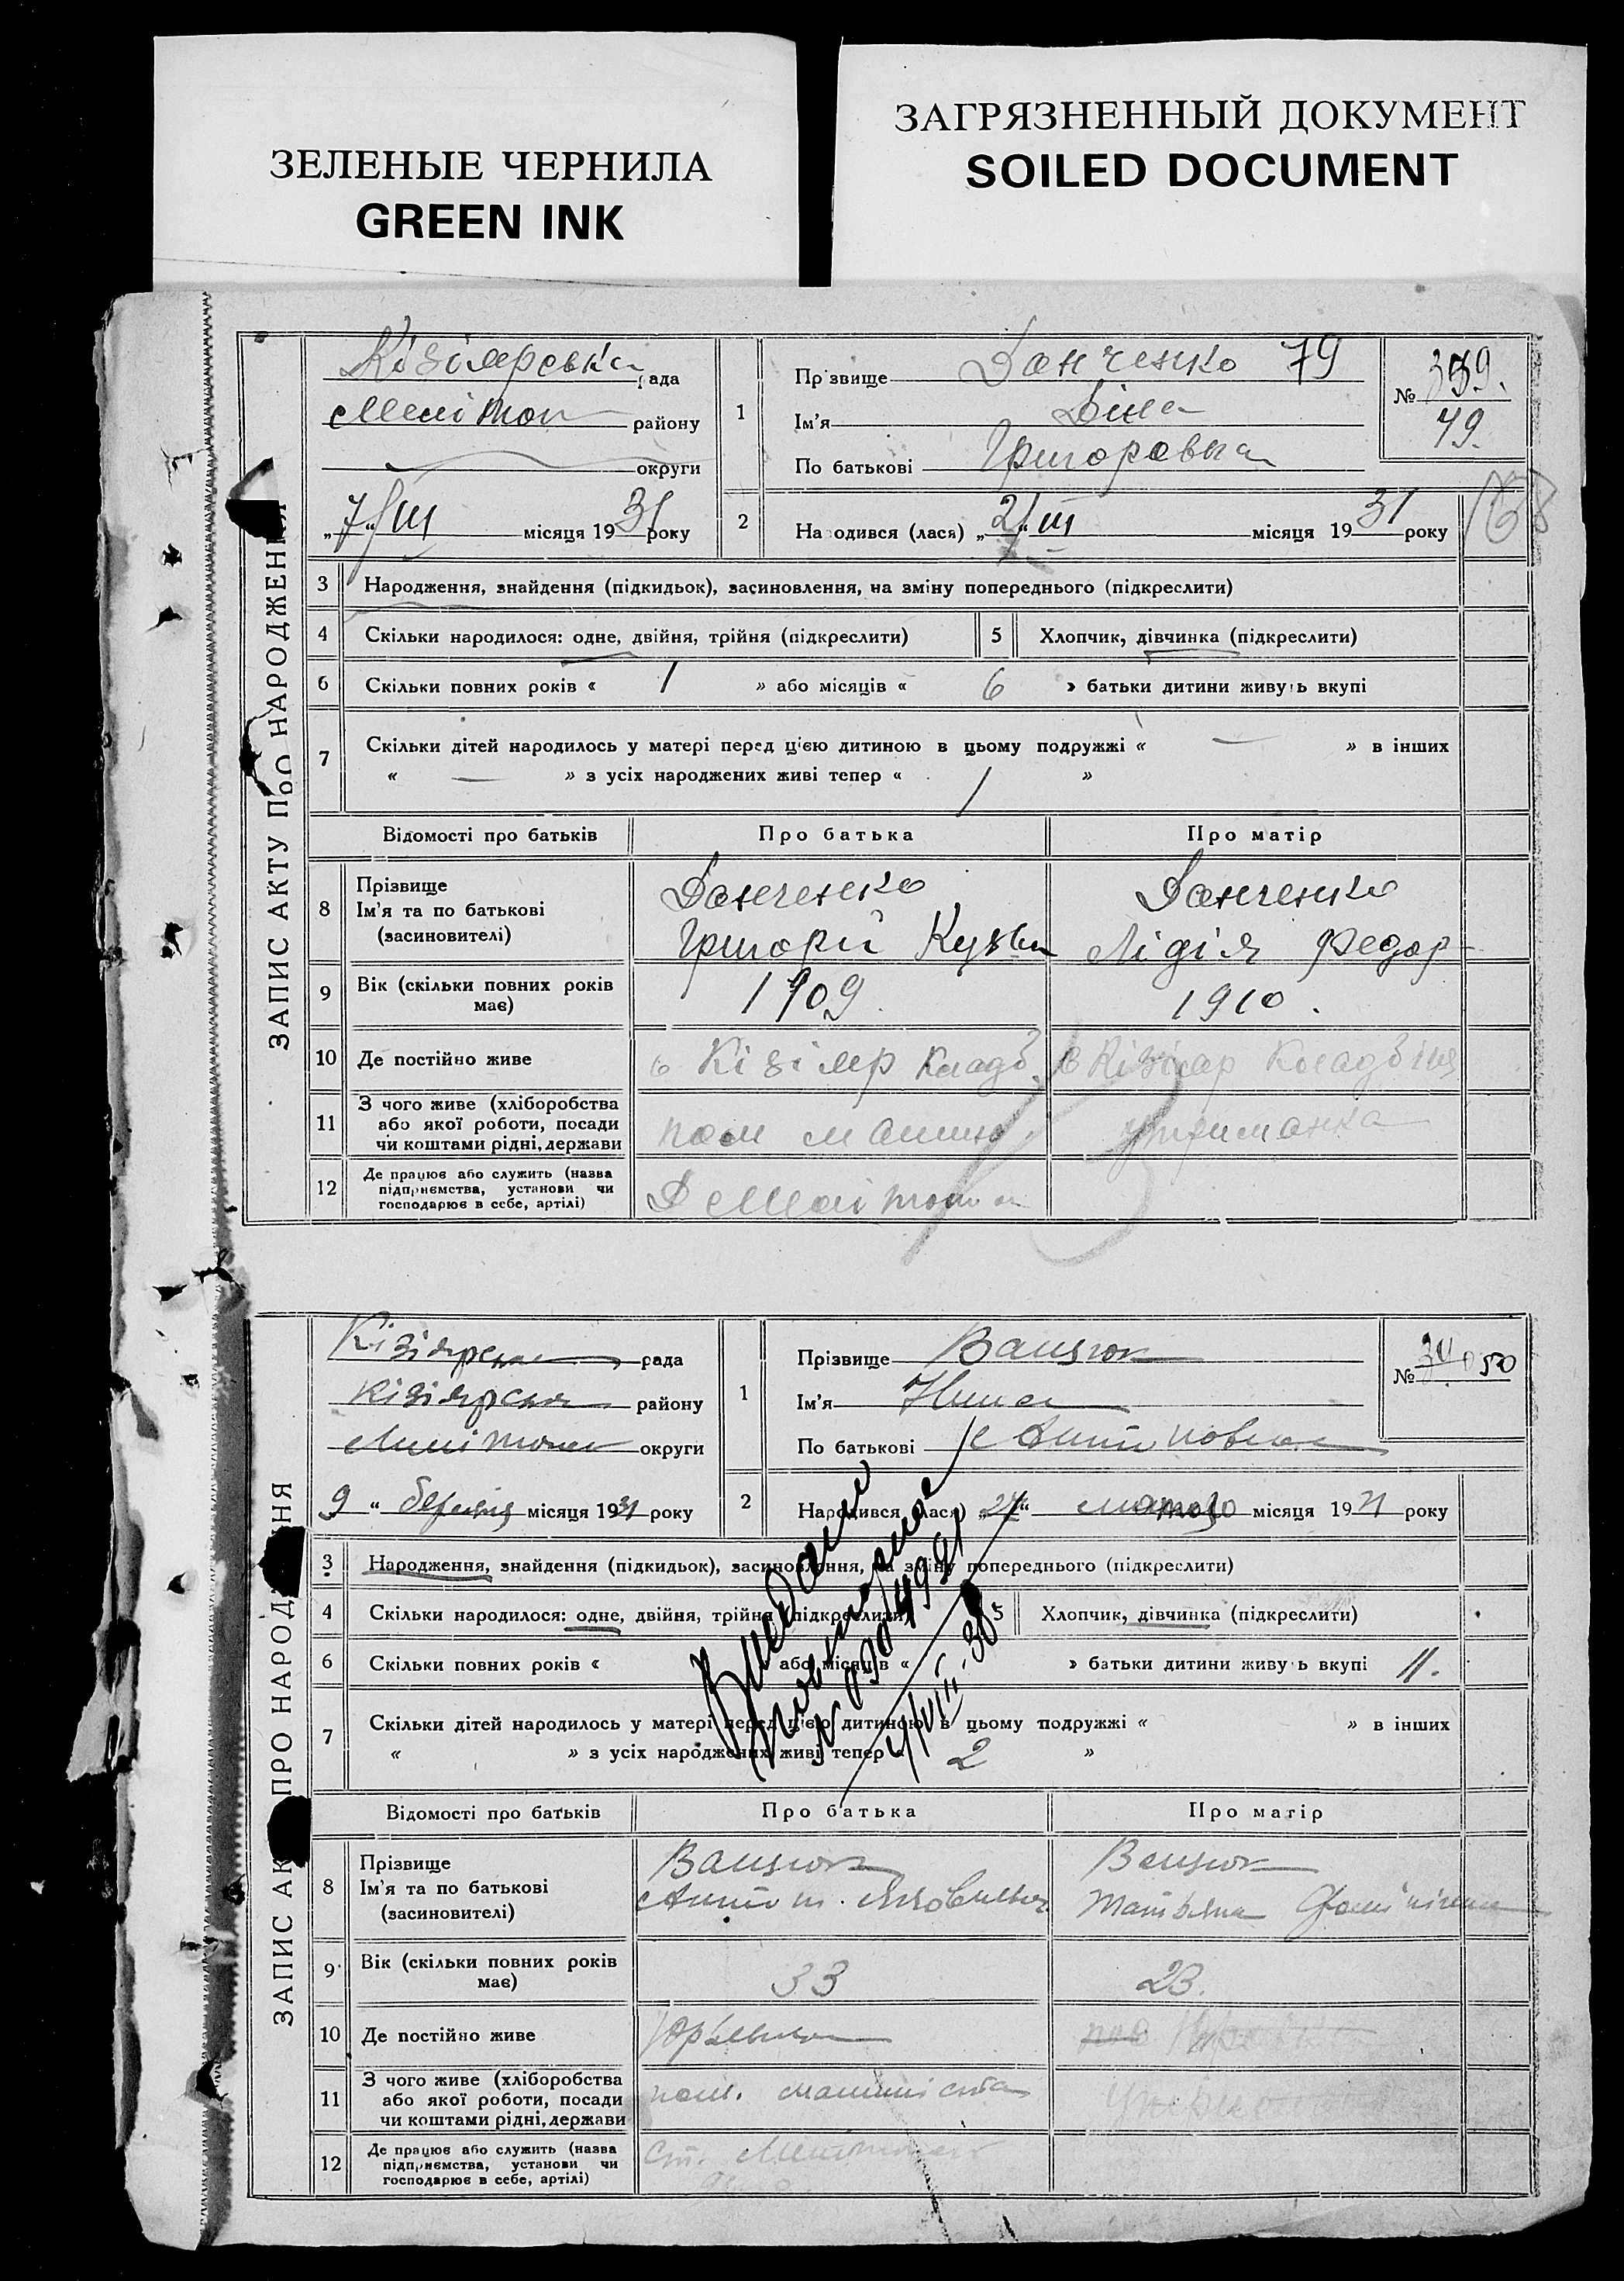 ЗЕЛЕНЫЕ ЧЕРНИЛА
GREEN INK
ЗАГРЯЗНЕННЫЙ ДОКУМЕНТ
SOILED DOCUMENT
ЗАПИС АКТУ ПРО НАРОДЖЕННЯ
Кізіярська рада
Меліто район
району
округи
„7“ III місяця 1931 року
1
Прізвище Данченко 79
Ім'я Діна
По батькові Григоровна
№ 359.
79.
2
Народився (лася) „2“ III місяця 1931 року
3 Народження, знайдення (підкидьок), засиновлення, на зміну попереднього (підкреслити)
4 Скільки народилося: одне, двійня, трійня (підкреслити)
5 Хлопчик, дівчинка (підкреслити)
6 Скільки повних років « 1 » або місяців « 6 » батьки дитини живуть вкупі
7 Скільки дітей народилось у матері перед цією дитиною в цьому подружжі « — » в інших
« — » з усіх народжених живі тепер « 1 »
Відомості про батьків Про батька Про матір
8 Прізвище
Ім'я та по батькові
(засновителі)
Данченко
Григорій Кузьм
Данченко
Лідія Федор
9 Вік (скільки повних років має)
1909. 1910.
10 Де постійно живе
Кізіяр Кладб. Кізіяр
11 З чого живе (хліборобства
або якої роботи, посади
чи коштами рідні, держави
пом машин утриманка
12 Де працює або служить (назва
підприємства, установи чи
господарює в себе, артілі)
Д Мелітополь
ЗАПИС АК ПРО НАРОД НЯ
Кізіярська рада
Кізіярська району
Мелітопол округи
9 “ березня місяця 1931 року
1
Прізвище Ванцюк
Ім'я Нина
По батькові Антоновна
№ 50
2
Народився (лася) 24“ лютого місяця 1931 року
3 Народження, знайдення (підкидьок), засиновлення, на зміну попереднього (підкреслити)
4 Скільки народилося: одне, двійня, трійня (підкреслити)
5 Хлопчик, дівчинка (підкреслити)
6 Скільки повних років « або місяців « » батьки дитини живуть вкупі 11.
7 Скільки дітей народилось у матері перед цією дитиною в цьому подружжі « » в інших
« » з усіх народжених живі тепер « 2 »
Видано
повторное
Відомості про батьків Про батька Про матір
8 Прізвище
Ім'я та по батькові
(засновителі)
Ванцюк
Антон Яковлевич
Ванцюк
Татьяна
9 Вік (скільки повних років має)
33 23.
10 Де постійно живе
11 З чого живе (хліборобства
або якої роботи, посади
чи коштами рідні, держави
пом. машиніста
12 Де працює або служить (назва
підприємства, установи чи
господарює в себе, артілі)
Ст. Мелітополь